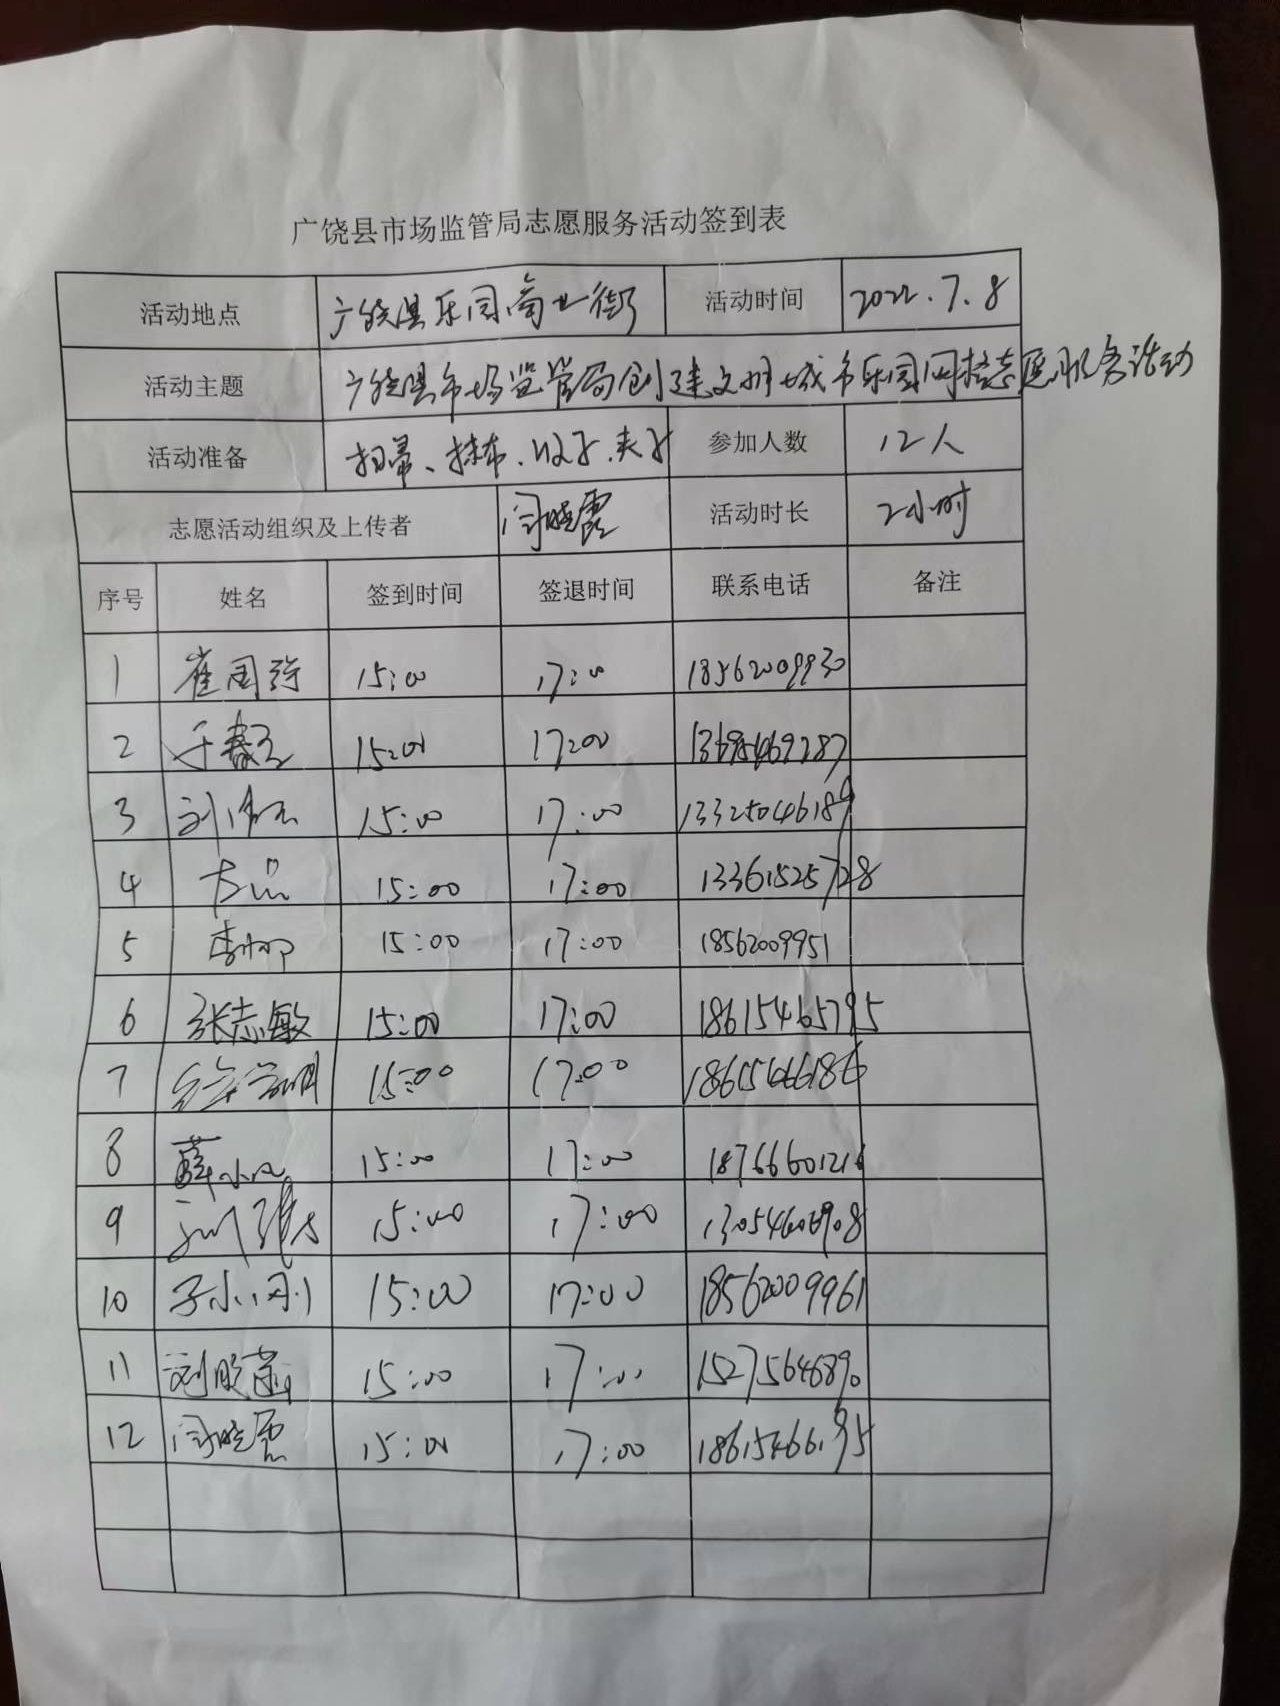 广饶县市场监管局志愿服务活动签到表
活动地点 广饶县乐园商业街 活动时间 2022.7.8
活动主题 广饶县市场监管局创建文明城市乐园网格志愿服务活动
活动准备 扫帚、抹布、夹子 参加人数 12人
志愿活动组织及上传者 闫晓霞 活动时长 2小时
序号 姓名 签到时间 签退时间 联系电话 备注
1 崔国强 15:00 17:00 18562009930
2 15:00 17:00 13695469287
3 15:00 17:00 13325046189
4 15:00 17:00 13361525728
5 李娜 15:00 17:00 18562009951
6 张志敏 15:00 17:00 18615465795
7 15:00 17:00 18615466186
8 15:00 17:00 18766601216
9 15:00 17:00
10 15:00 17:00 18562009961
11 15:00 17:00 15275646890
12 闫晓霞 15:00 17:00 18615466195